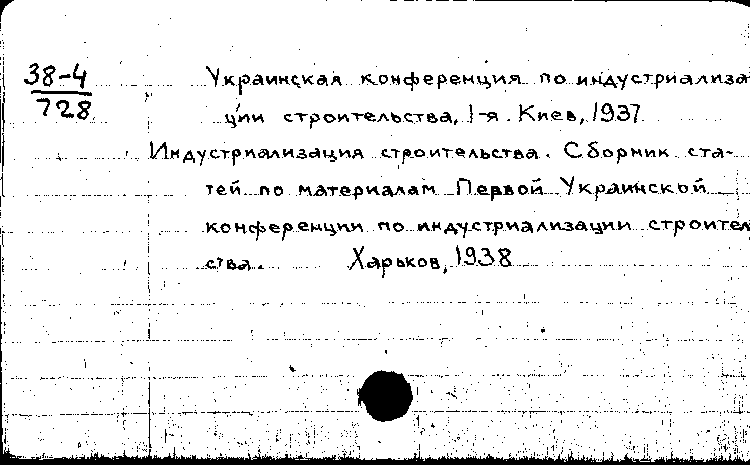 38-4
728
Украинская конференция по индустриализа
ции строительства, 1-я. Киев, 1937
Индустриализация строительства. Сборник ста-
тей по материалам Первой Украинской
конференции по индустриализации строитель
ства. Харьков, 1938